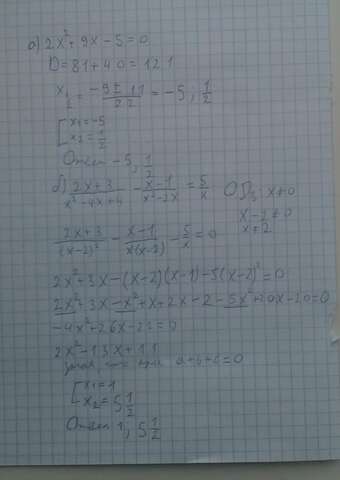 а) 2x² + 9x - 5 = 0
D = 81 + 40 = 121
x₁,₂ = (-9 ± 11)/(2·2) = -5; 1/2
[x₁ = -5
x₂ = 1/2
Ответ -5; 1/2
б) (2x+3)/(x²-4x+4) - (x-1)/(x²-2x) = 5/x ОДЗ: x≠0
x-2≠0
x≠2
(2x+3)/(x-2)² - (x-1)/(x(x-2)) - 5/x = 0
2x² + 3x - (x-2)(x-1) - 5(x-2)² = 0
2x² + 3x - x² + x + 2x - 2 - 5x² + 20x - 20 = 0
-4x² + 26x - 22 = 0
2x² - 13x + 11
что при a+b+c=0
[x₁ = 1
x₂ = 5 1/2
Ответ 1; 5 1/2